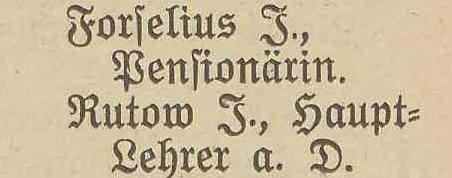 Forſelius J.,
Penſionärin.
Rutow J., Haupt-
Lehrer a. D.